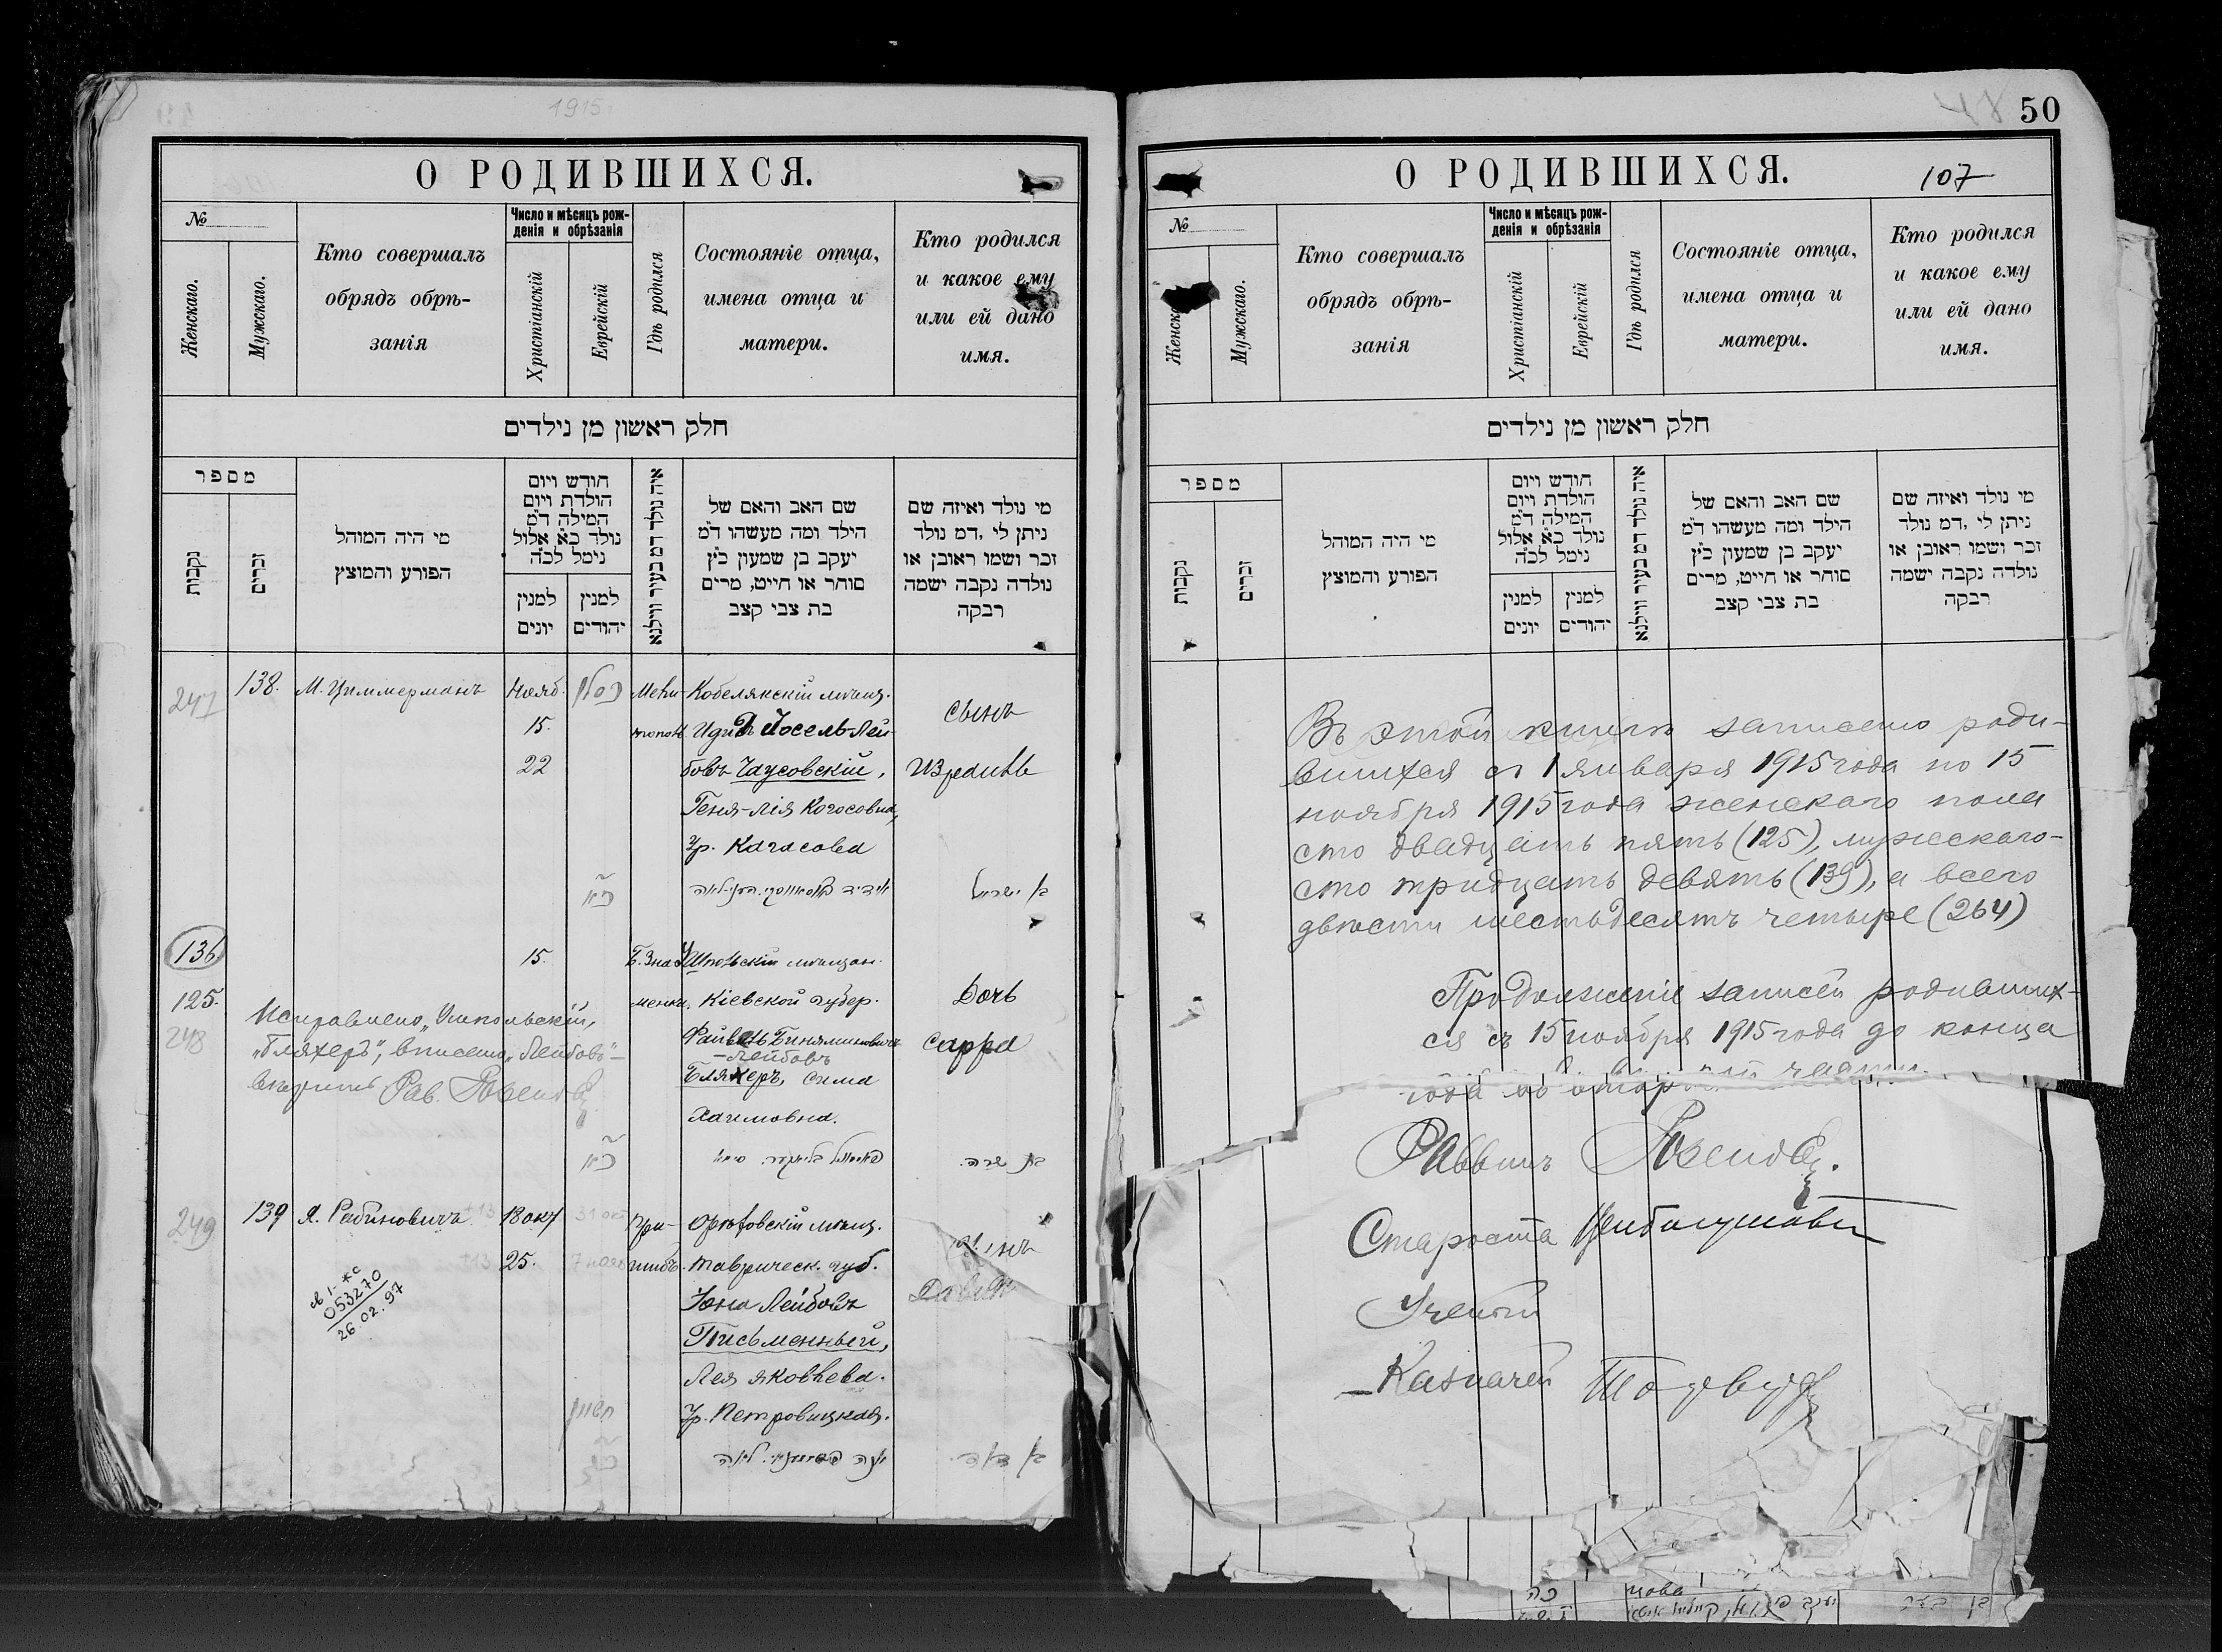 1915
О РОДИВШИХСЯ.
№
Женскаго.
Мужскаго.
Кто совершалъ
обрядъ обрѣ-
занія
Число и мѣсяцъ рож-
денія и обрѣзанія
Христіанскій
Еврейскій
Гдѣ родился
Состояніе отца,
имена отца и
матери.
Кто родился
и какое ему
или ей дано
имя.
חלק ראשון מן נילדים
מספר
נקבות
זכרים
מי היה המוהל
הפורע והמוצץ
חודש ויום
הולדת ויום
המילה ד״מ
נולד כ״א אלול
נימל לכ״ה
למנין
יונים
למנין
יהודים
איה נולד דמ בעיר ווילנא
שם האב והאם של
הילד ומה מעשהו ד״מ
יעקב בן שמעון כ״ץ
סוחר או חייט, מרים
בת צבי קצב
מי נולד ואיזה שם
ניתן לי ,דמ נולד
זכר ושמו ראובן או
נולדה נקבה ישמה
רבקה
247
138.
М. Циммерманъ
Нояб.
15.
22
כסלו
Мели-
топол.
Кобелякскій мѣщ.
Юдид Іосель Лей-
бовъ Чаусовскій,
Геня-Лія Когосовна,
Ур. Кагасова
сынъ
Израиль
בן ישראל
136
125.
248
15.
Б. Зна-
менка.
Шпольскій мѣщан.
Кіевской губер.
Файвель Биняминовичъ
-Лейбовъ
Бляхеръ, Сима
Хаимовна.
Дочь
Сарра
בת שרה.
Исправлено „Умпольскій,
„Бляхеръ", вписано „Лейбовъ"-
вѣрить Рав.
249
139
Я. Рабиновичъ
18 окт
25.
31 окт
7 нояб
+13
+13
Гри-
шинъ.
Орѣховскій мѣщ.
Таврическ. губ.
Іона Лейбовъ
Письменный,
Лея Яковлева.
Ур. Петровицкая.
Давидъ
חשון
יונה פיסמעני. לאה
בן דוד.
053270
26.02.97
48
50
О РОДИВШИХСЯ.
107
№
Женска
Мужскаго.
Кто совершалъ
обрядъ обрѣ-
занія
Число и мѣсяцъ рож-
денія и обрѣзанія
Христіанскій
Еврейскій
Гдѣ родился
Состояніе отца,
имена отца и
матери.
Кто родился
и какое ему
или ей дано
имя.
חלק ראשון מן נילדים
מספר
נקבות
זכרים
מי היה המוהל
הפורע והמוצץ
חודש ויום
הולדת ויום
המילה ד״מ
נולד כ״א אלול
נימל לכ״ה
למנין
יונים
למנין
יהודים
איה נולד דמ בעיר ווילנא
שם האב והאם של
הילד ומה מעשהו ד״מ
יעקב בן שמעון כ״ץ
סוחר או חייט, מרים
בת צבי קצב
מי נולד ואיזה שם
ניתן לי ,דמ נולד
זכר ושמו ראובן או
נולדה נקבה ישמה
רבקה
Въ этой книгѣ записано роди-
вшихся съ 1 января 1915 года по 15
ноября 1915 года женскаго пола
сто двадцать пять (125), мужскаго-
сто тридцать девять (139), а всего
двѣсти шестьдесятъ четыре (264)
Продолженіе записей родивших-
ся съ 15 ноября 1915 года до конца
года во второй части.
Раввинъ
Староста
Ученый
Казначей